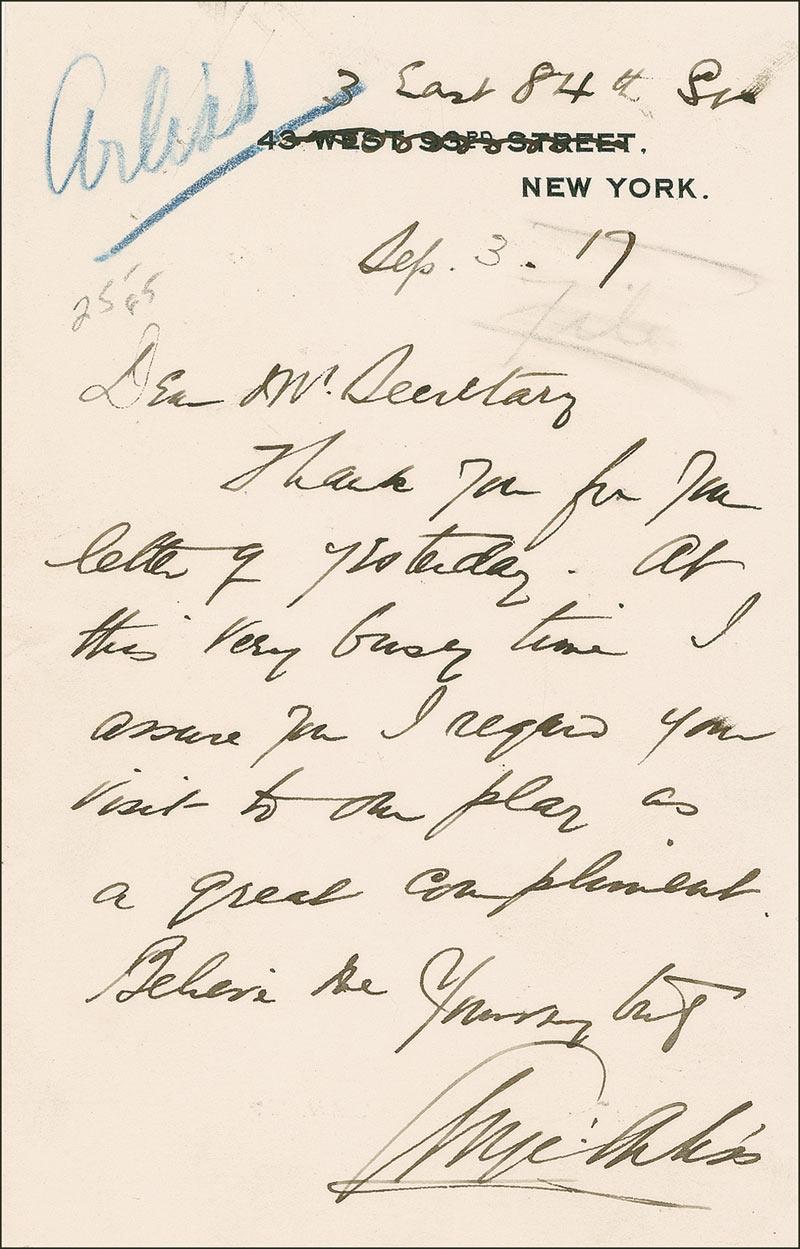 Arliss
3 East 84th St
43 WEST 93RD STREET.
NEW YORK.
Sep. 3. 17
File
Dear Mr. Secretary
Thank you for your
letter of yesterday. At
this very busy time I
assure you I regard your
visit to our play as
a great compliment.
Believe me Yours truly
George Arliss